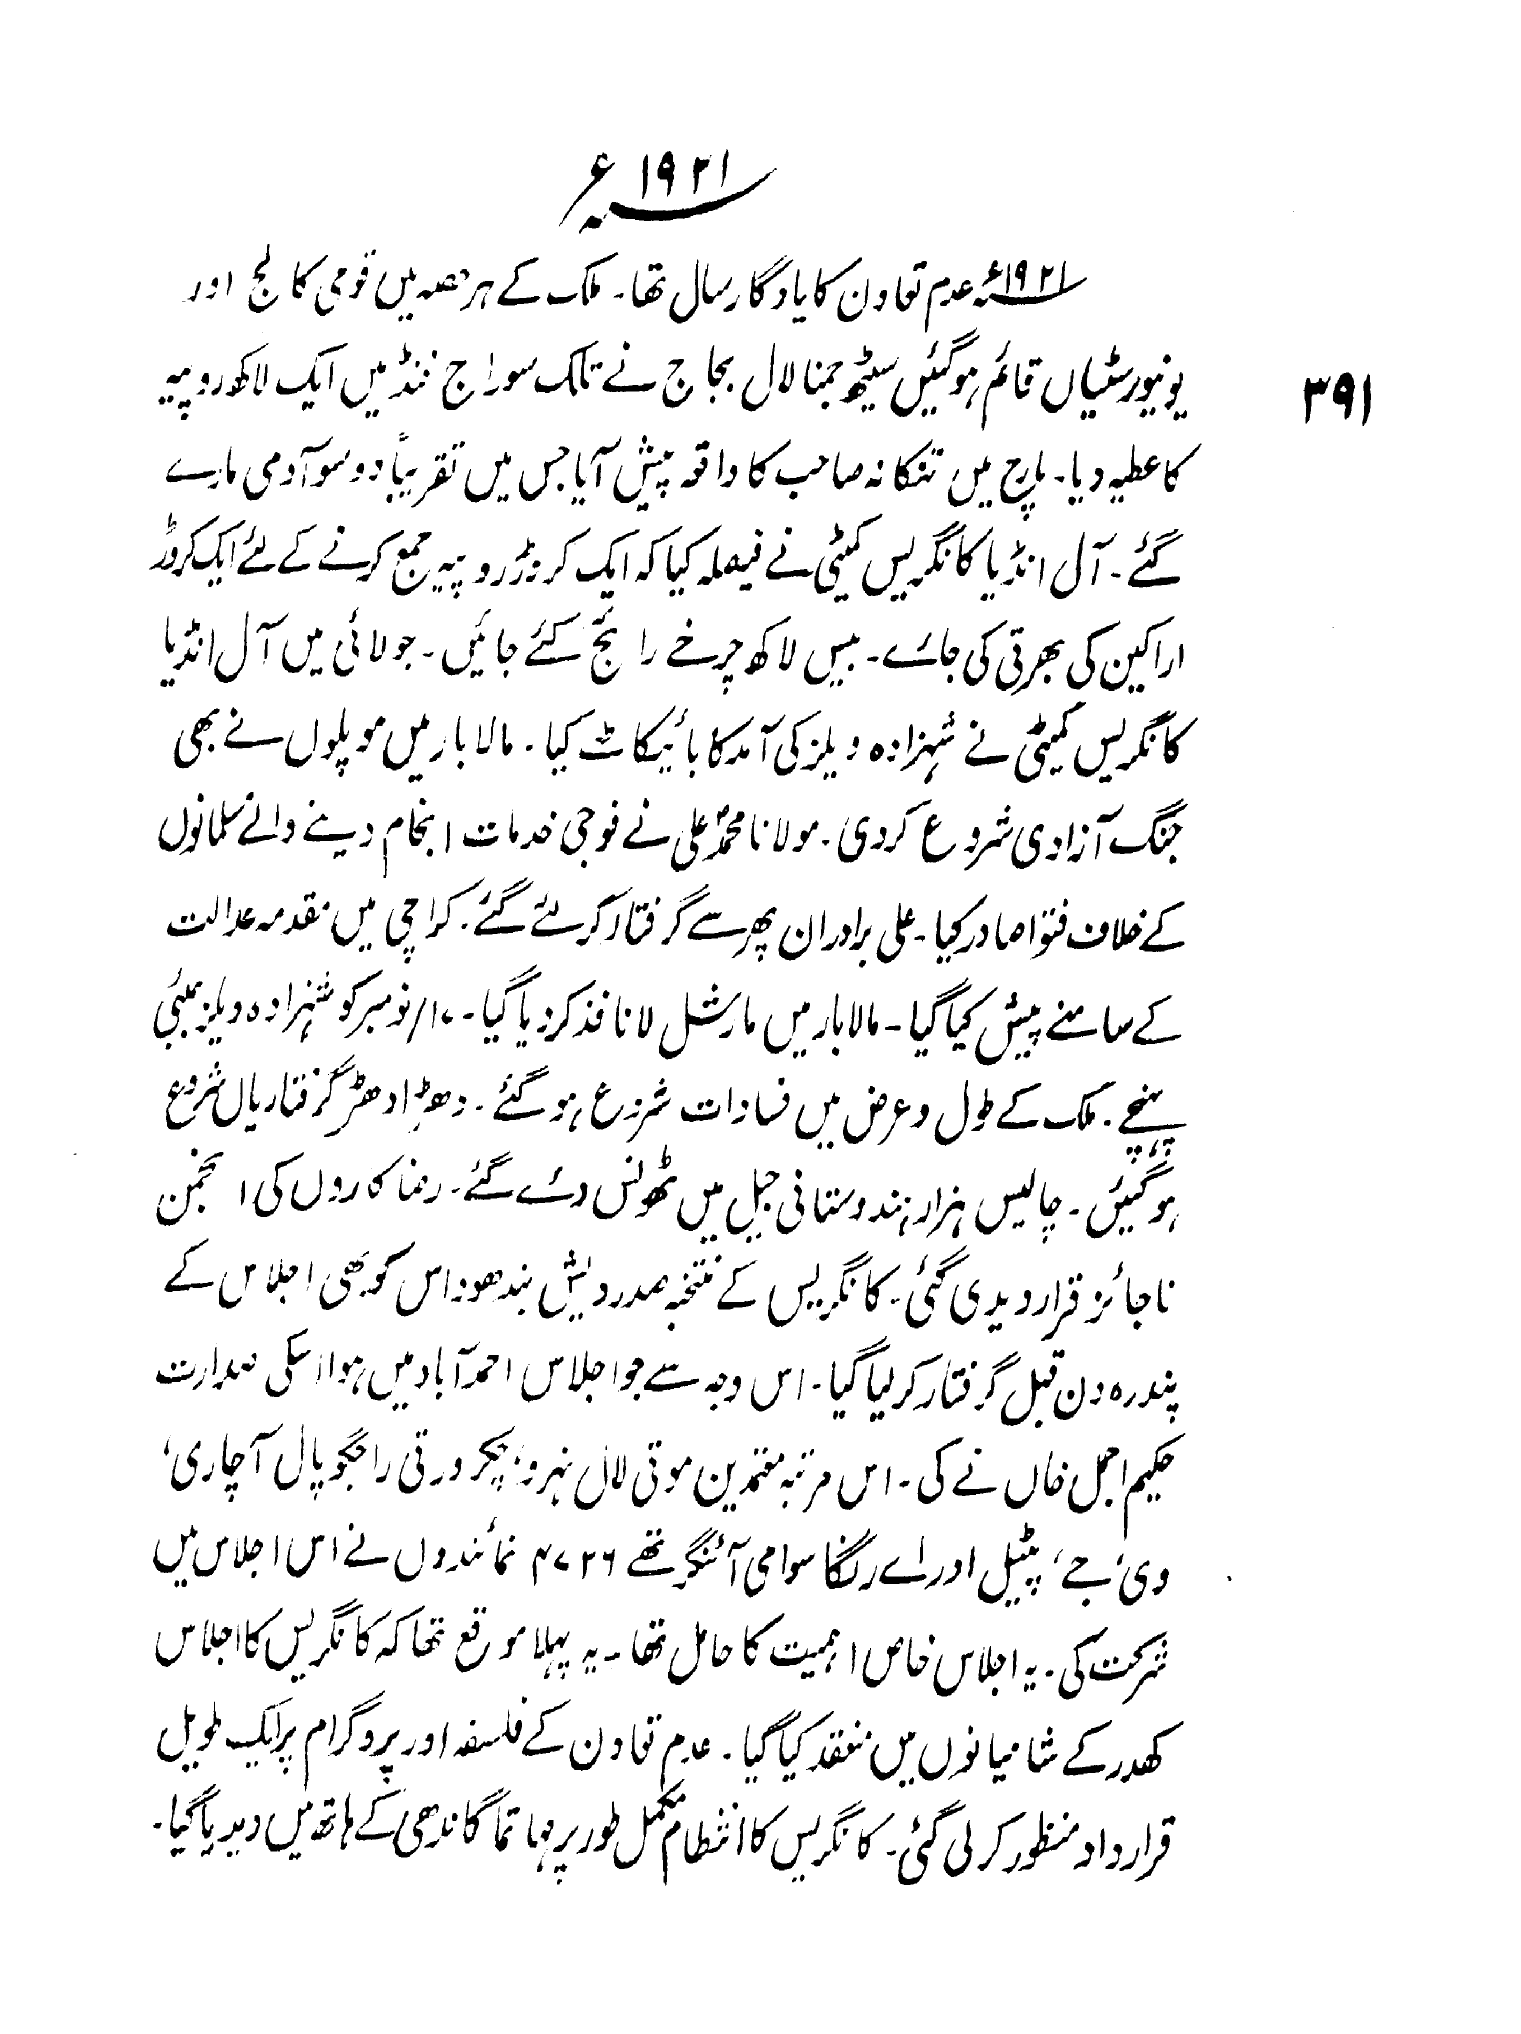 ۱۹۲۱ء
۱۹۲۱ء عدم تعاون کا یادگار سال تھا۔ ملک کے ہر حصہ میں قومی کالج اور
یونیورسٹیاں قائم ہو گئیں سیٹھ جمنا لال بجاج نے تلک سوراج فنڈ میں ایک لاکھ روپیہ
۳۹۱
کا عطیہ دیا۔ مارچ میں ننکانہ صاحب کا واقعہ پیش آیا جس میں تقریباً دو سو آدمی مارے
گئے۔ آل انڈیا کانگریس کمیٹی نے فیصلہ کیا کہ ایک کروڑ روپیہ جمع کرنے کے لئے ایک کروڑ
اراکین کی بھرتی کی جائے۔ بیس لاکھ چرخے رائج کئے جائیں۔ جولائی میں آل انڈیا
کانگریس کمیٹی نے شہزادہ ویلز کی آمد کا بائیکاٹ کیا۔ مالابار میں موپلوں نے بھی
جنگ آزادی شروع کردی۔ مولانا محمد علی نے فوجی خدمات انجام دینے والے مسلمانوں
کے خلاف فتوا صادر کیا۔ علی برادران پھر سے گرفتار کر لئے گئے۔ کراچی میں مقدمہ عدالت
کے سامنے پیش کیا گیا۔ مالابار میں مارشل لا نافذ کردیا گیا۔ ۱۷/نومبر کو شہزادہ ویلز بمبئی
پہنچے۔ ملک کے طول و عرض میں فسادات شروع ہو گئے۔ دھڑا دھڑ گرفتاریاں شروع
ہو گئیں۔ چالیس ہزار ہندوستانی جیل میں ٹھونس دئے گئے۔ رضا کاروں کی انجمن
ناجائز قرار دیدی گئی۔ کانگریس کے منتخبہ صدر دیش بندھو داس کو بھی اجلاس کے
پندرہ دن قبل گرفتار کر لیا گیا۔ اس وجہ سے جو اجلاس احمد آباد میں ہوا اسکی صدارت
حکیم اجمل خاں نے کی۔ اس مرتبہ معتمدین موتی لال نہرو، چکرورتی راجگوپال آچاری،
وی، جے، پٹیل اور اے رنگا سوامی آئنگر تھے ۴۷۲۶ نمائندوں نے اس اجلاس میں
شرکت کی۔ یہ اجلاس خاص اہمیت کا حامل تھا۔ یہ پہلا موقع تھا کہ کانگریس کا اجلاس
کھدر کے شامیانوں میں منعقد کیا گیا۔ عدم تعاون کے فلسفہ اور پروگرام پر ایک طویل
قرارداد منظور کر لی گئی۔ کانگریس کا انتظام مکمل طور پر مہاتما گاندھی کے ہاتھ میں دیدیا گیا۔